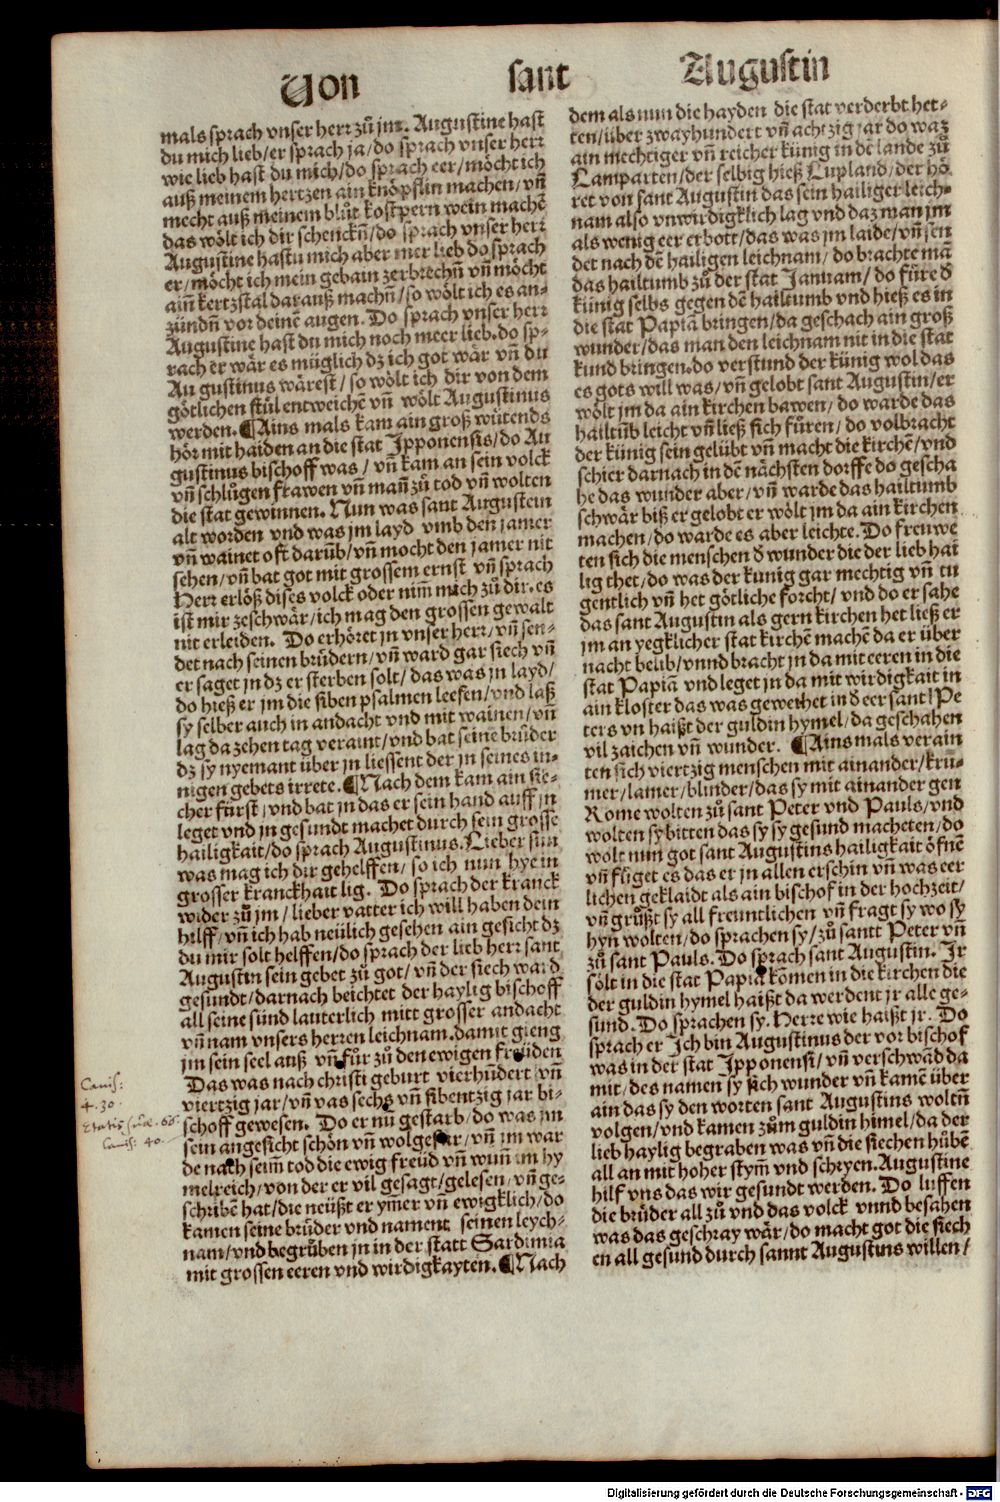 Von sant Augustin
mals sprach vnser herr zů jm. Augustine hast
du mich lieb/er sprach ja/do sprach vnser herr
wie lieb hast du mich/do sprach eer/möcht ich
auß meinem hertzen ain knöpflin machen/vñ
mecht auß meinem blůt kostpern wein machē
das wölt ich dir schenckñ/do sprach vnser herr
Augustine hastu mich aber mer lieb do sprach
er/möcht ich mein gebain zerbrechñ vñ möcht
ainñ kertzstal darauß machñ/so wölt ich es an⸗
zündñ vor deinē augen. Do sprach vnser herr
Augustine hast du mich noch meer lieb.do sp⸗
rach er wär es müglich dz ich got wär vñ du
Au gustinus wärest/so wölt ich dir von dem
götlichen stůl entweichē vñ wölt Augustinus
werden.¶Ains mals kam ain groß wütends
hör mit haiden an die stat Ipponensis/do Au
gustinus bischoff was/vñ kam an sein volck
vñ schlůgen frawen vñ mañ zů tod vñ wolten
die stat gewinnen. Nun was sant Augustein
alt worden vnd was jm layd vmb den jamer
vñ wainet oft darüb/vñ mocht den jamer nit
sehen/vñ bat got mit grossem ernst vñ sprach
Herr erlöß dises volck oder nim̃ mich zů dir.es
ist mir zeschwär/ich mag den grossen gewalt
nit erleiden. Do erhöret jn vnser herr/vñ sen⸗
det nach seinen brüdern/vñ ward gar siech vñ
er saget jn dz er sterben solt/das was jn layd/
do hieß er jm die siben psalmen leesen/vnd laß
sy selber auch in andacht vnd mit wainen/vñ
lag da zehen tag veraint/vnd bat seine brüder
dz sy nyemant über jn liessent der jn seines in⸗
nigen gebets irrete.¶Nach dem kam ain sie⸗
cher fürst/vnd bat jn das er sein hand auff jn
leget vnd jn gesundt machet durch sein grosse
hailigkait/do sprach Augustinus.Lieber sun
was mag ich dir gehelffen/so ich nun hye in
grosser kranckhait lig. Do sprach der kranck
wider zů jm/lieber vatter ich will haben dein
hilff/vñ ich hab neülich gesehen ain gesicht dz
du mir solt helffen/do sprach der lieb herr sant
Augustin sein gebet zů got/vñ der siech ward
gesundt/darnach beichtet der haylig bischoff
all seine sünd lauterlich mitt grosser andacht
vñ nam vnsers herren leichnam.damit gieng
jm sein seel auß vñ fůr zů den ewigen freüden
Das was nach christi geburt vierhundert vñ
viertzig jar/vñ was sechs vñ sibentzig jar bi⸗
schoff gewesen. Do er nũ gestarb/do was jm
sein angesicht schön vñ wolgefar/vñ jm war
de nach seim̃ tod die ewig freüd vñ wuñ im hy
melreich/von der er vil gesagt/gelesen/vñ ge⸗
schribē hat/die neüßt er ymer vñ ewigklich/do
kamen seine brüder vnd nament seinen leych⸗
nam/vnd begrůben jn in der statt Sardinia
mit grossen eeren vnd wirdigkayten.¶Nach
Canis:
4. 30.
Etatis suæ. 66.
Canis: 40.
dem als nun die hayden die stat verderbt het⸗
ten/über zwayhundert vñ achtzig jar do waz
ain mechtiger vñ reicher künig in dē lande zů
Lamparten/der selbig hieß Lupland/der hö
ret von sant Augustin das sein hailiger leich⸗
nam also vnwirdigklich lag vnd daz man jm
als wenig eer erbott/das was jm laide/vñ sen
det nach dē hailigen leichnam/do brachte mã
das hailtumb zů der stat Januam/do fůre d̄
künig selbs gegen dē hailtumb vnd hieß es in
die stat Papiã bringen/da geschach ain groß
wunder/das man den leichnam nit in die stat
kund bringen.do verstund der künig wol das
es gots will was/vñ gelobt sant Augustin/er
wölt jm da ain kirchen bawen/do warde das
hailtũb leicht vñ ließ sich fůren/do volbracht
der künig sein gelübt vñ macht die kirchē/vnd
schier darnach in dē nächsten dorffe do gescha
he das wunder aber/vñ warde das hailtumb
schwär biß er gelobt er wölt jm da ain kirchen
machen/do warde es aber leichte. Do freuwe
ten sich die menschen d̄ wunder die der lieb hai
lig thet/do was der kunig gar mechtig vñ tu
gentlich vñ het götliche forcht/vnd do er sahe
das sant Augustin als gern kirchen het ließ er
jm an yegklicher stat kirchē machē da er über
nacht belib/vnnd bracht jn da mit eeren in die
stat Papiã vnd leget jn da mit wirdigkait in
ain kloster das was geweihet in d̄ eer sant Pe
ters vn haißt der guldin hymel/da geschahen
vil zaichen vñ wunder. ¶Ains mals verain
ten sich viertzig menschen mit ainander/krü⸗
mer/lamer/blinder/das sy mit ainander gen
Rome wolten zů sant Peter vnd Pauls/vnd
wolten sy bitten das sy sy gesund macheten/do
wolt nun got sant Augustins hailigkait öfnē
vñ flüget es das er jn allen erschin vñ was eer
lichen geklaidt als ain bischof in der hochzeit/
vñ grůßt sy all freuntlichen vñ fragt sy wo sy
hyn wolten/do sprachen sy/zů santt Peter vñ
zů sant Pauls. Do sprach sant Augustin. Jr
sölt in die stat Papia kõmen in die kirchen die
der guldin hymel haißt da werdent jr alle ge⸗
sund. Do sprachen sy. Herre wie haißt jr. Do
sprach er Ich bin Augustinus der vor bischof
was in der stat Ipponensi/vñ verschwäd da
mit/des namen sy sich wunder vñ kamē über
ain das sy den worten sant Augustins woltñ
volgen/vnd kamen zům guldin himel/da der
lieb haylig begraben was vñ die siechen hübē
all an mit hoher stym̃ vnd schryen.Augustine
hilf vns das wir gesundt werden. Do luffen
die brüder all zů vnd das volck vnnd besahen
was das geschray wär/do macht got die siech
en all gesund durch sannt Augustins willen/
Digitalisierung gefördert durch die Deutsche Forschungsgemeinschaft - DFG